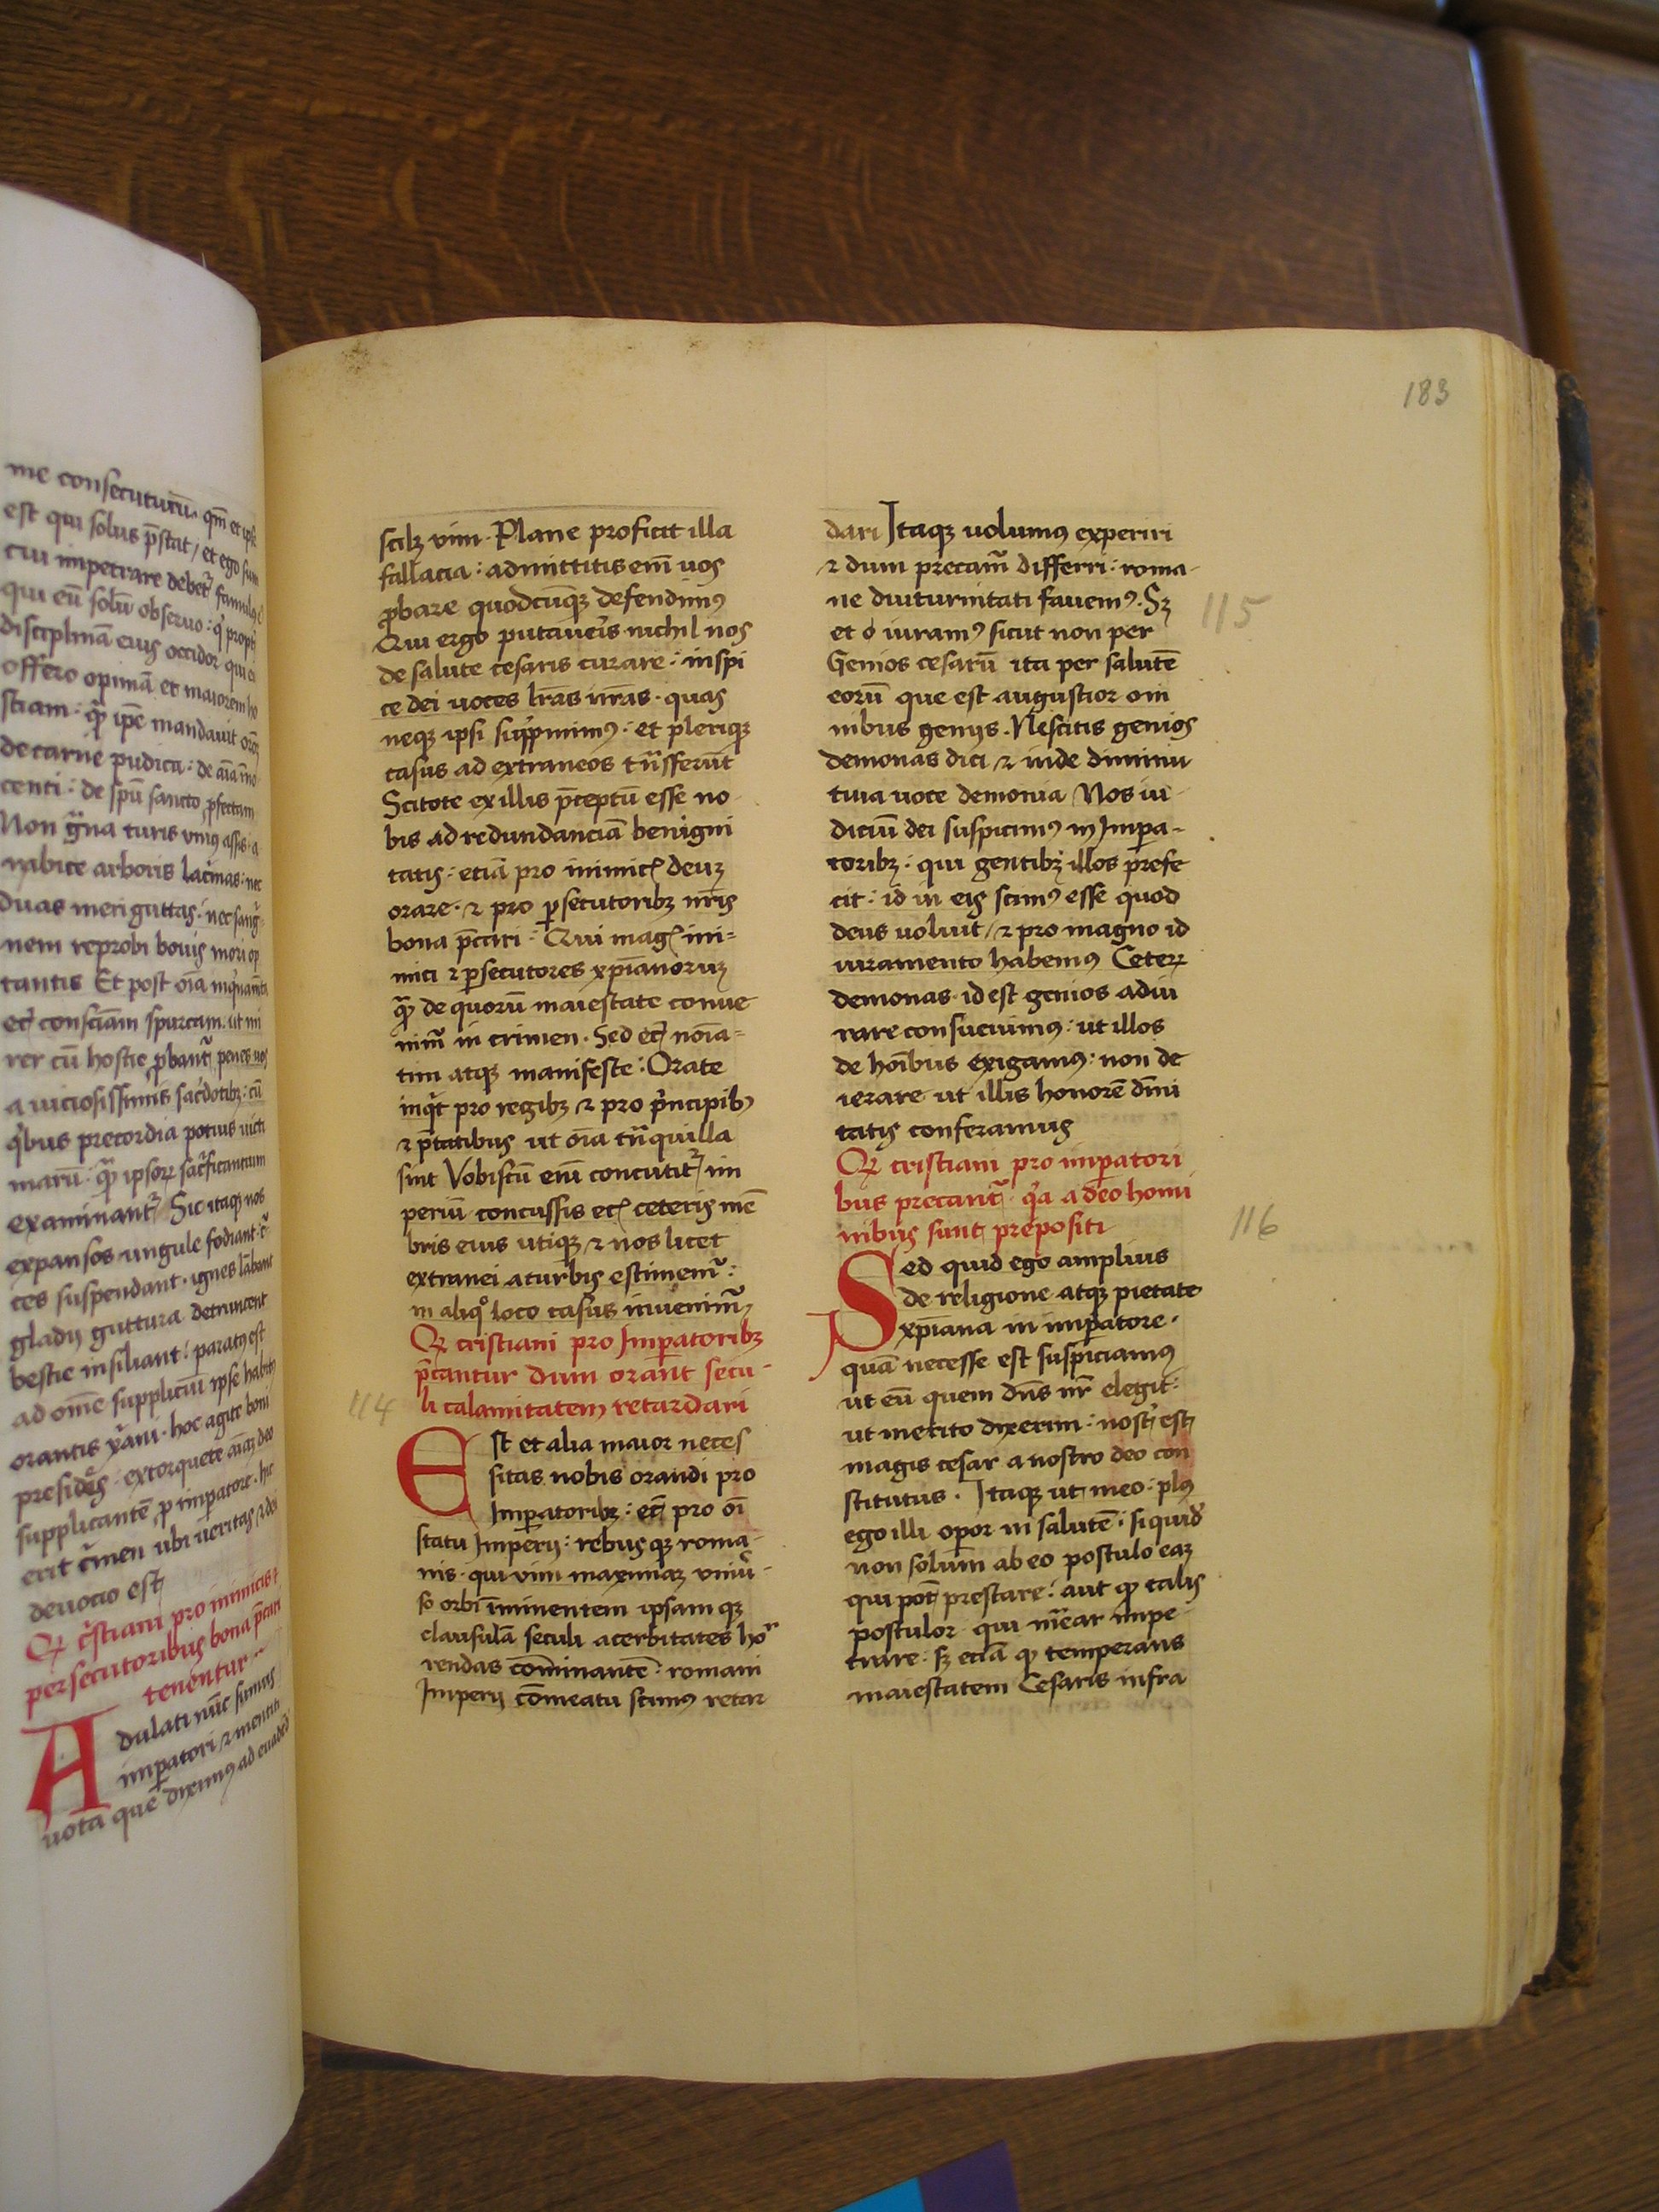 me consecuturū. qm̄ et ipse
est qui solus p̄stat / et ego sum
cui impetrare debet᷑ famulus
qui eū solū obseruo : q' propt̄
disciplinā eius occidor qui ei
offero opimā et maiorem ho
stiam : quā ipe mandauit
de carne pudica : de aīa īno
centi : de spū sancto profectam
Non grana turis vnius assis a
rabice arboris lacrimas : nec
duas meri guttas : nec sangui
nem reprobi bouis mori op
tantis Et post oīa inquinamta
ec̄ consciam spurcam : ut mi
rer cū hostie probant᷑ penes uos
a uiciosissimis sacdotibꝫ : cū
q'bus precordia potius uicti
marū : quā ipsoꝝ sacrificantium
examinant᷑ Sic itaqꝫ nos
expansos ungule fodiant. c̄
ces suspendant . ignes lābant
gladij guttura detruncent
bestie insiliant : parat9 est
ad omē suppliciū ipse habit9
orantis xp̄iani . hoc agite boni
presides . extorquete aīaꝫ deo
supplicantē pro imperatore . hic
erit crimen ubi ueritas / 
deuocio est
Qꝫ cristiani pro inimicis
persecutoribus bona p̄cari
tenentur
Adulati nūc sumus
imperatori ⁊ mentiti
uota que diximus ad euadēd
183
scilꝫ vim . Plane proficit illa
fallacia : admittitis em̄ uos
probare quodcūqꝫ defendim9
Qui ergo putaueris nichil nos
de salute cesaris curare : inspi
ce dei uoces lr̄as nr̄as . quas
neqꝫ ipsi supprimim9 : et pleriqꝫ
casus ad extraneos tr̄nsferūt
Scitote ex illis p̄ceptū esse no
bis ad redundanciā benigni
tatis : etiā pro inimicꝭ deuꝫ
orare . ⁊ pro psecutoribꝫ nr̄is
bona p̄cari : Qui magꝭ ini=
mici ⁊ psecutores xp̄ianoruꝫ
quā de quorū maiestate conue
nim᷑ in crimen . Sed ec̄ noīa=
tim atqꝫ manifeste : Orate
inqt pro regibꝫ ⁊ pro principib9
⁊ p̄tatibus ut oīa tr̄nquilla
sint Vobiscū enī concutit᷑ im
periū concussis ecꝭ ceteris mē
bris eius utiqꝫ ⁊ nos licet
extranei a turbis estimem᷑ :
in aliqo loco casus inuenim᷑
Qꝫ cristiani pro Imꝑatoribꝫ
p̄cantur dum orant secu
li calamitatem retardari
114
Est et alia maior neces
sitas nobis orandi pro
Imꝑatoribꝫ : ec̄ pro oī
statu Imperij : rebus qꝫ roma
nis . qui vim maximaꝫ vniu
so orbi īminentem ipsam qꝫ
clausulā seculi acerbitates hor
rendas cōminantē : romani
Imperij cōmeatu scim9 retar
dari Itaqꝫ uolum9 experiri
⁊ dum precam᷑ differri : roma-
ne diuturnitati fauem9 . Sꝫ
115
et ó iuram9 sicut non per
Genios cesarū ita per salutē
eorū que est augustior om
nibus genijs . Nescitis genios
demonas dici ⁊ inde diminu
tiua uoce demonia Nos iu
diciū dei suspicim9 in Impa-
toribꝫ : qui gentibꝫ illos prefe
cit : id in eis scim9 esse quod
deus uoluit / ⁊ pro magno id
iuramento habem9 Ceteꝝ
demonas . id est genios adiu
rare consueuim9 : ut illos
de hoībus exigam9 : non de
ierare ut illis honorē dīni
tatis conferamus
Qꝫ cristiani pro imꝑatori
bus precant᷑ . qa a deo homi
nibus sunt prepositi
116
Sed quid ego amplius
de religione atqꝫ pietate
xp̄iana in imꝑatore .
quā necesse est suspiciam9
ut eū quem dn̄s nr̄ elegit :
ut merito dixerim : nost᷑ est
magis cesar a nostro deo con
stitutus . Itaqꝫ ut meo : pl9
ego illi operor in salutē : siquid
non solum ab eo postulo eaꝫ
qui pōt prestare : aut ꝙ talis
postulor qui m̄ear impe
trare : sꝫ etiā ꝙ temperans
maiestatem Cesaris infra